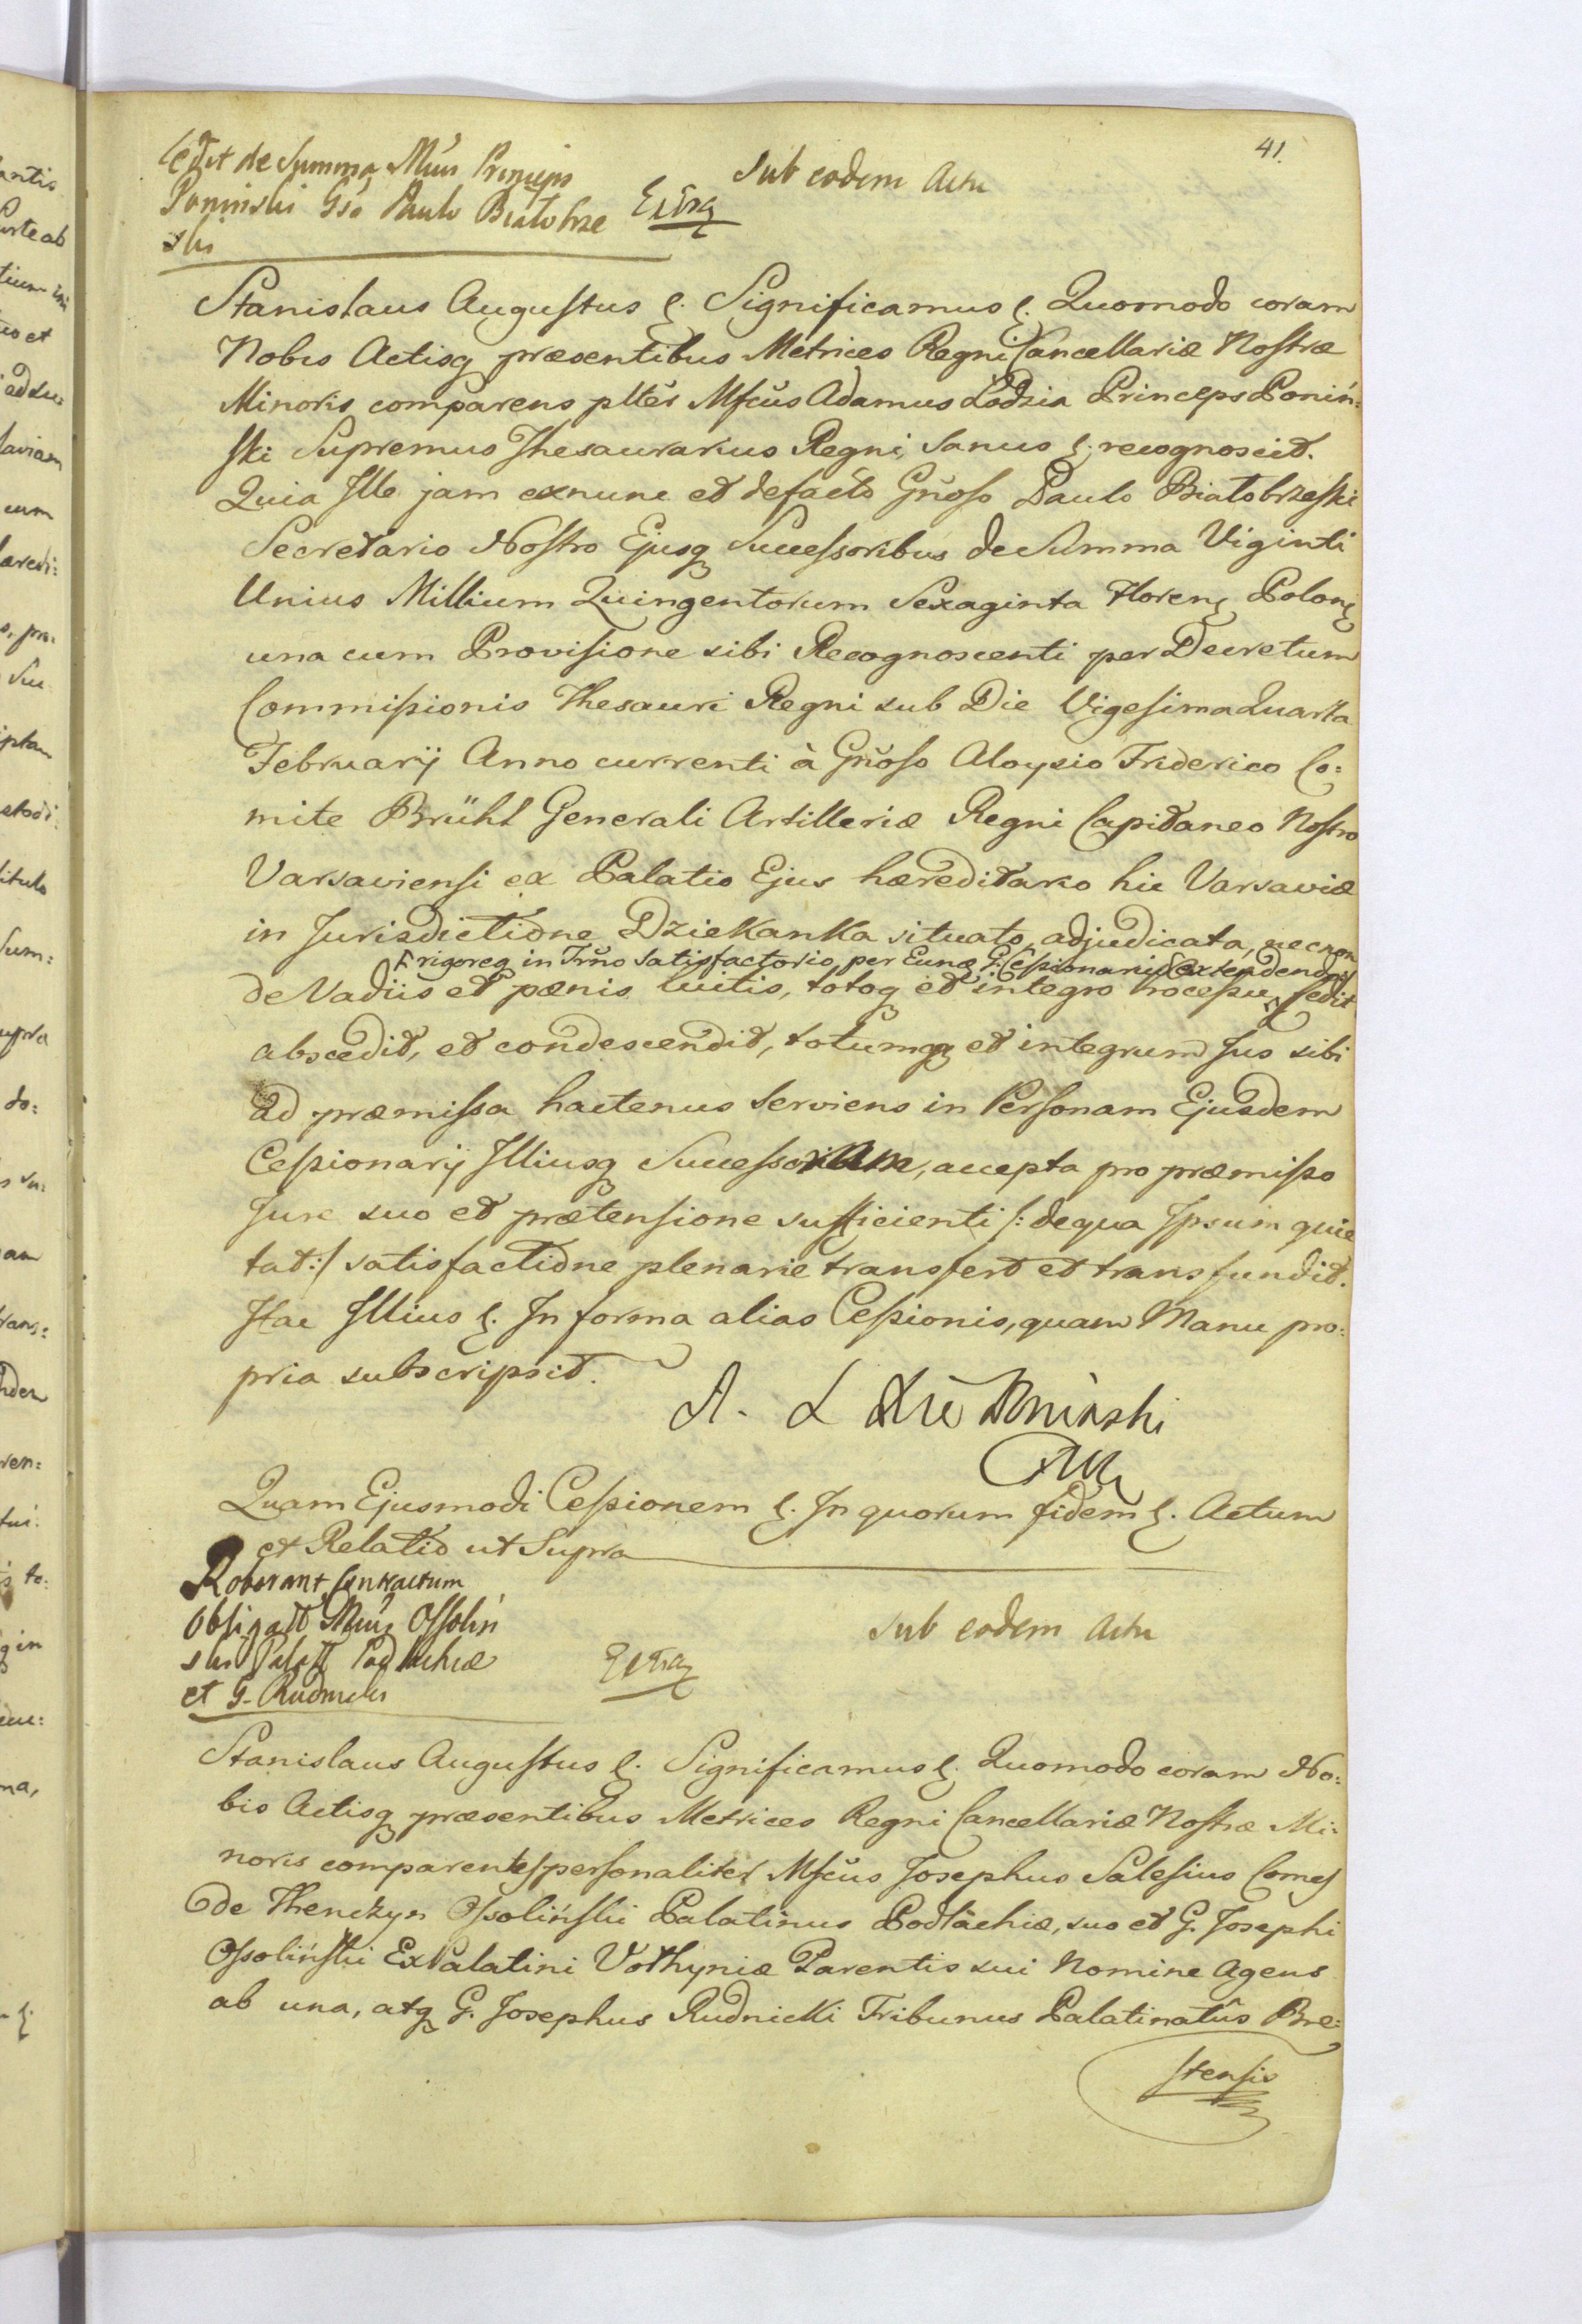 41.
Cedit de Summa Mcus Princeps
Poninski Gso Paulo Białobrze
ski
Extra
Sub eodem Actu
Stanislaus Augustus &. Significamus &. Quomodo coram
Nobis Actisq præsentibus Metrices Regni Cancellariæ Nostræ
Minoris comparens plter Mfcus Adamus Łodzia Princeps Ponin:
ski Supremus Thesaurarius Regni, Sanus &. recognoscit.
Quia Ille jam exnunc et defacto Gnoso Paulo Białobrzeski
Secretario Nostro Ejusq Successoribus de Summa Viginti
Unius Millium Quingentorum Sexaginta Floren Polon
una cum Provisione sibi Recognoscenti per Decretum
Commissionis Thesauri Regni sub Die Vigesima Quarta
Februarij Anno currenti à Gnoso Aloysio Friderico Co:
mite Brühl Generali Artilleriæ Regni Capitaneo Nostro
Varsaviensi ex Palatio Ejus hæreditario hic Varsaviæ
in Jurisdictione Dziekanka situato, adjudicata, necnon
rigoreq in Trno Satisfactorio per Eunq G. Cessionariu extendendo
de Vadiis et pænis luitis, totoq et integro Processu, Cedit
abscedit, et condescendit, totumq et integrum Jus sibi
ad præmissa hactenus Serviens in Personam Ejusdem
Cessionarij Illiusq Successorum, accepta pro præmisso
Jure suo et prætensione sufficienti /: de qua Ipsum quie
tat :/ satisfactione plenarie transfert et transfundit.
Hac Illius &. In forma alias Cessionis, quam Manu pro:
pria subscripsit.
A. Ł Xże Poninski
Quam Ejusmodi Cessionem &. In quorum fidem &. Actum
et Relatio ut Supra
Roborant Contractum
Obligatt Mcus Ossolin
ski Palatt Podlachiæ
et G. Rudnicki
Extra
Sub eodem Actu
Stanislaus Augustus &. Significamus &. Quomodo coram No:
bis Actisq præsentibus Metrices Regni Cancellariæ Nostræ Mi:
noris comparentes personaliter Mfcus Josephus Salesius Comes
de Thenczyn Ossoliński Palatinus Podlachiæ, suo et G. Josephi
Ossoliński ExPalatini Volhyniæ Parentis sui Nomine Agens
ab una, atq G. Josephus Rudnicki Tribunus Palatinatûs Bre:
stensis